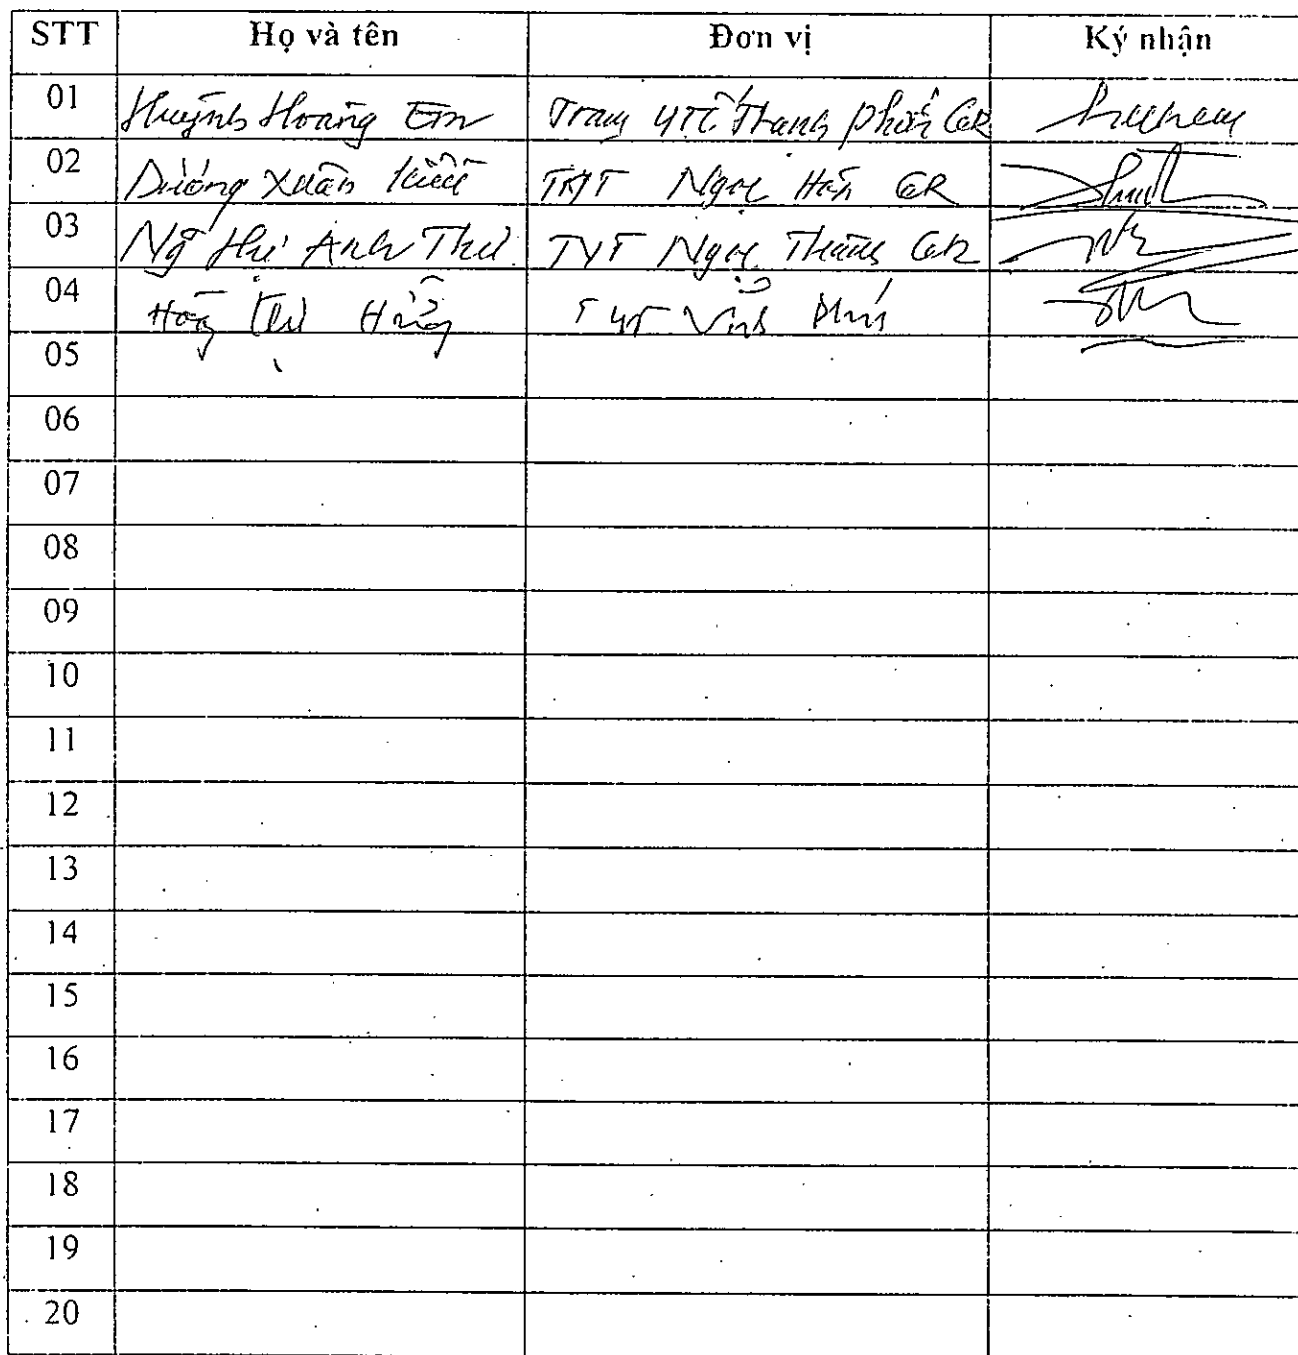 STT Họ và tên Đơn vị Ký nhận
01 Huỳnh Hoàng Em Trạm y tế Thạnh Phước GR
02 Dương Xuân TYT Ngọc GR
03 Ng Thị Anh Thư TYT Ngọc Thành GR
04 Thị TYT Vĩnh Phú
05
06
07
08
09
10
11
12
13
14
15
16
17
18
19
20